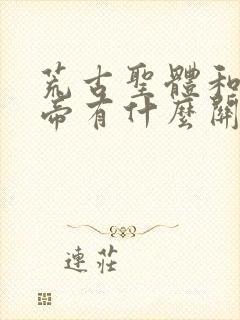 荒古聖體和
帝有什麼關
連莊